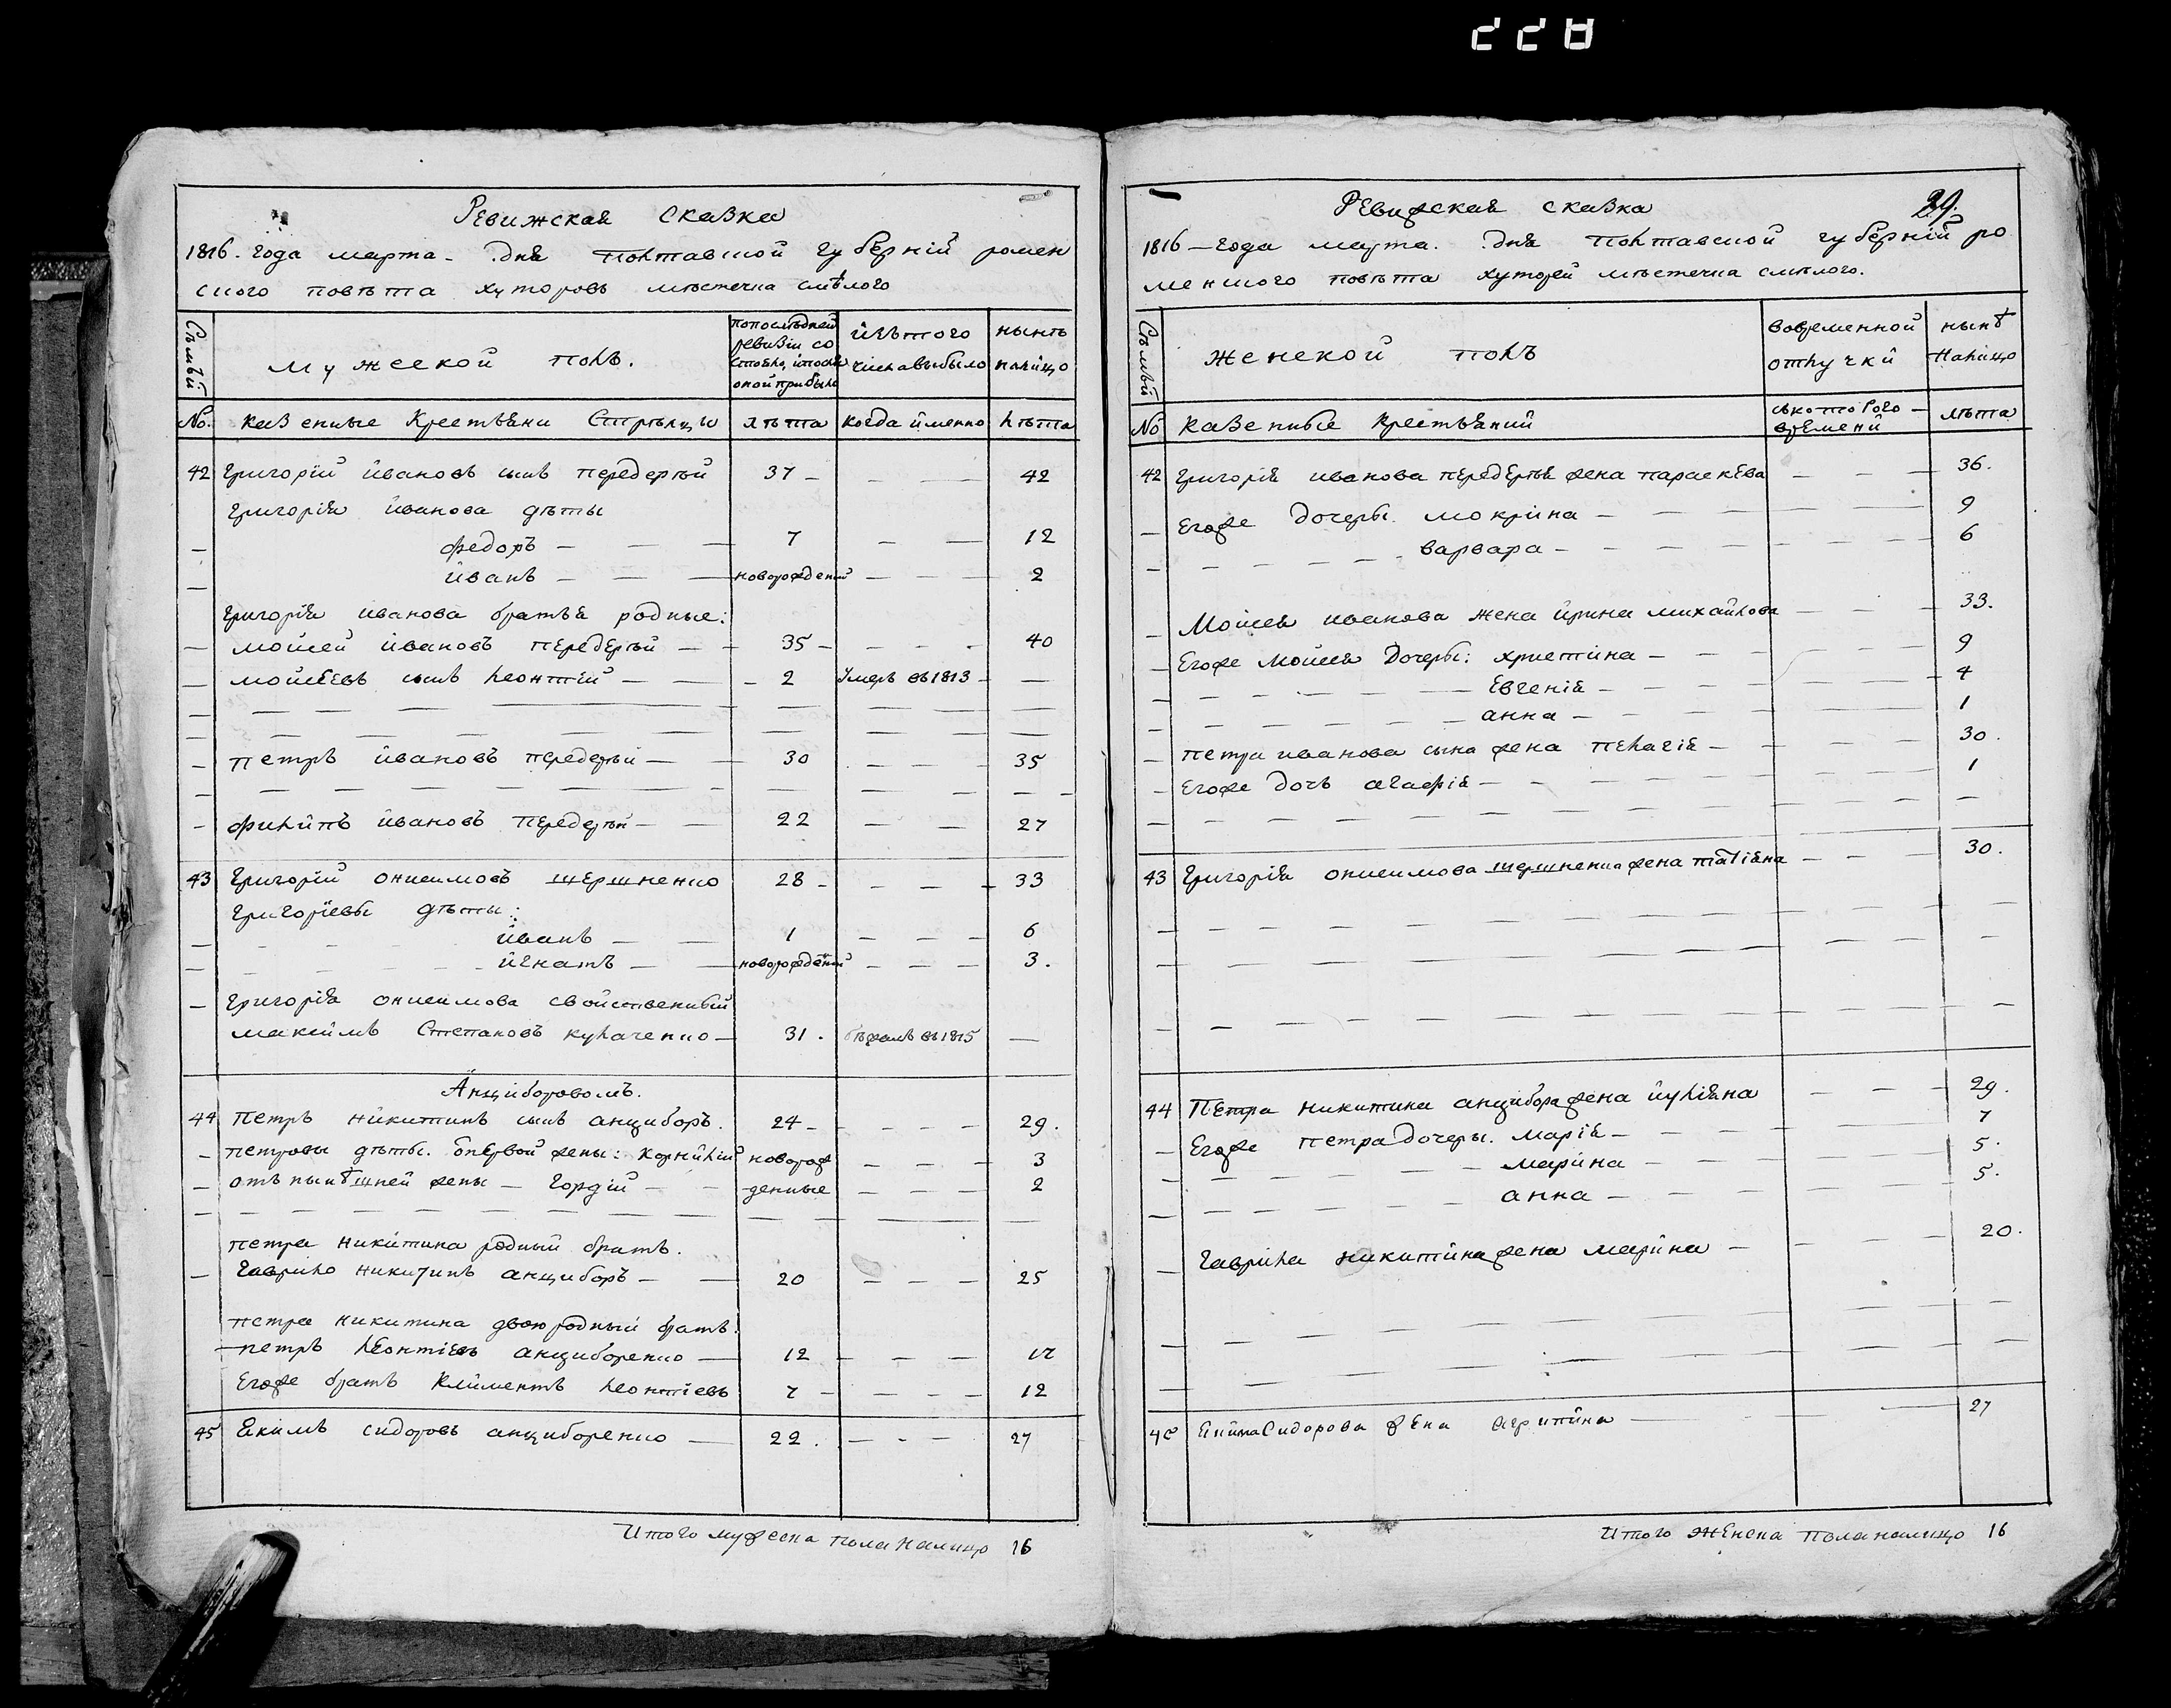 228
Ревижская сказка
1816. года марта - дня полтавской губернїй ромен
ского повѣта хуторовъ мѣстечка смѣлого
Сѣмьй
мужеской полъ.
попослѣдней ревизіи со стояло, ипослѣ оной прибыло
йзъ того числа выбыло
нынѣ налицо
№. казенные крестьяни Стрѣлцы лѣта когда йменно лѣта
42 григорїй йвановъ сынъ передерѣй 37 - - - 42
григорія йванова дѣты
- федоръ - - - 7 - - 12
- йванъ - - - новорожденый - - - 2
григорїя иванова братья родные:
- мойсей йвановъ передерѣй - - 35 - - - - 40
- мойсѣевъ сынъ леонтїй - - - 2 Умеръ въ 1813 - -
- петръ йвановъ передерѣй - - 30 - - - 35
- филипъ йвановъ передерѣй - - 22 - - 27
43 григорїй онисимовъ шершненко 28 - - - - 33
григорїевы дѣты:
- йванъ - - 1 - - - 6
- йгнатъ - - новорожденый - - - 3.
- григорїя онисимова свойственный
максймъ Степановъ кулаченко - 31. бѣжалъ въ 1815 -
Анциборовомъ.
44 петръ никитинъ сынъ анциборъ. 24 - - - - 29.
- петровы дѣты. ѿпервой жены: корнилій новорож - - - 3
- отъ нынѣшней жены - гордїй - - денные - - - 2
петра никитина родный братъ.
- гаврило никитинъ анциборъ - - 20 - - - 25
петра никитина двоюродный братъ.
- петръ леонтїевъ анциборенко - 12 - - - 17
Егоже братъ климентъ леонтїевъ 7 - - - - 12
45 Екимъ сидоровъ анциборенко - 22. - - - 27
Итого мужеска пола налицо 16
29.
Ревижская сказка
1816 - года марта. дня полтавской губернїй ро
менского повѣта хуторей мѣстечка смѣлого.
Сѣмьй
женской полъ
вовременной отлучкй
нынѣ налицо
№ казенные крестьяний съкоторого - времени лѣта
42 григорїя иванова передерѣя жена параскева - - - 36.
- Егоже дочеры. мокрина - - - - - 9
- - - - - варвара - - - - - 6
- Мойсея иванова жена йрина михайлова - - - 33.
- Егоже мойсея дочеры: христина - - - 9
- - - - - Евгенїя - - - - 4
- - - - - анна - - - - 1
- петра иванова сына жена пелагїя - - - - 30.
- Егоже дочъ агафїя - - - - - 1
43 григорїя онисимова шершненка жена татїяна - - - 30.
44 Петра никитина анцибора жена йулїяна - - - 29.
- Егоже петра дочеры. марїя - - - - 7
- - - - - марина - - - - 5.
- - - - - анна - - - - 5.
- гаврила никитина жена марина - - - - 20.
45 Екима Сидорова жена агрипина - - - 27
Итого женска пола налицо 16